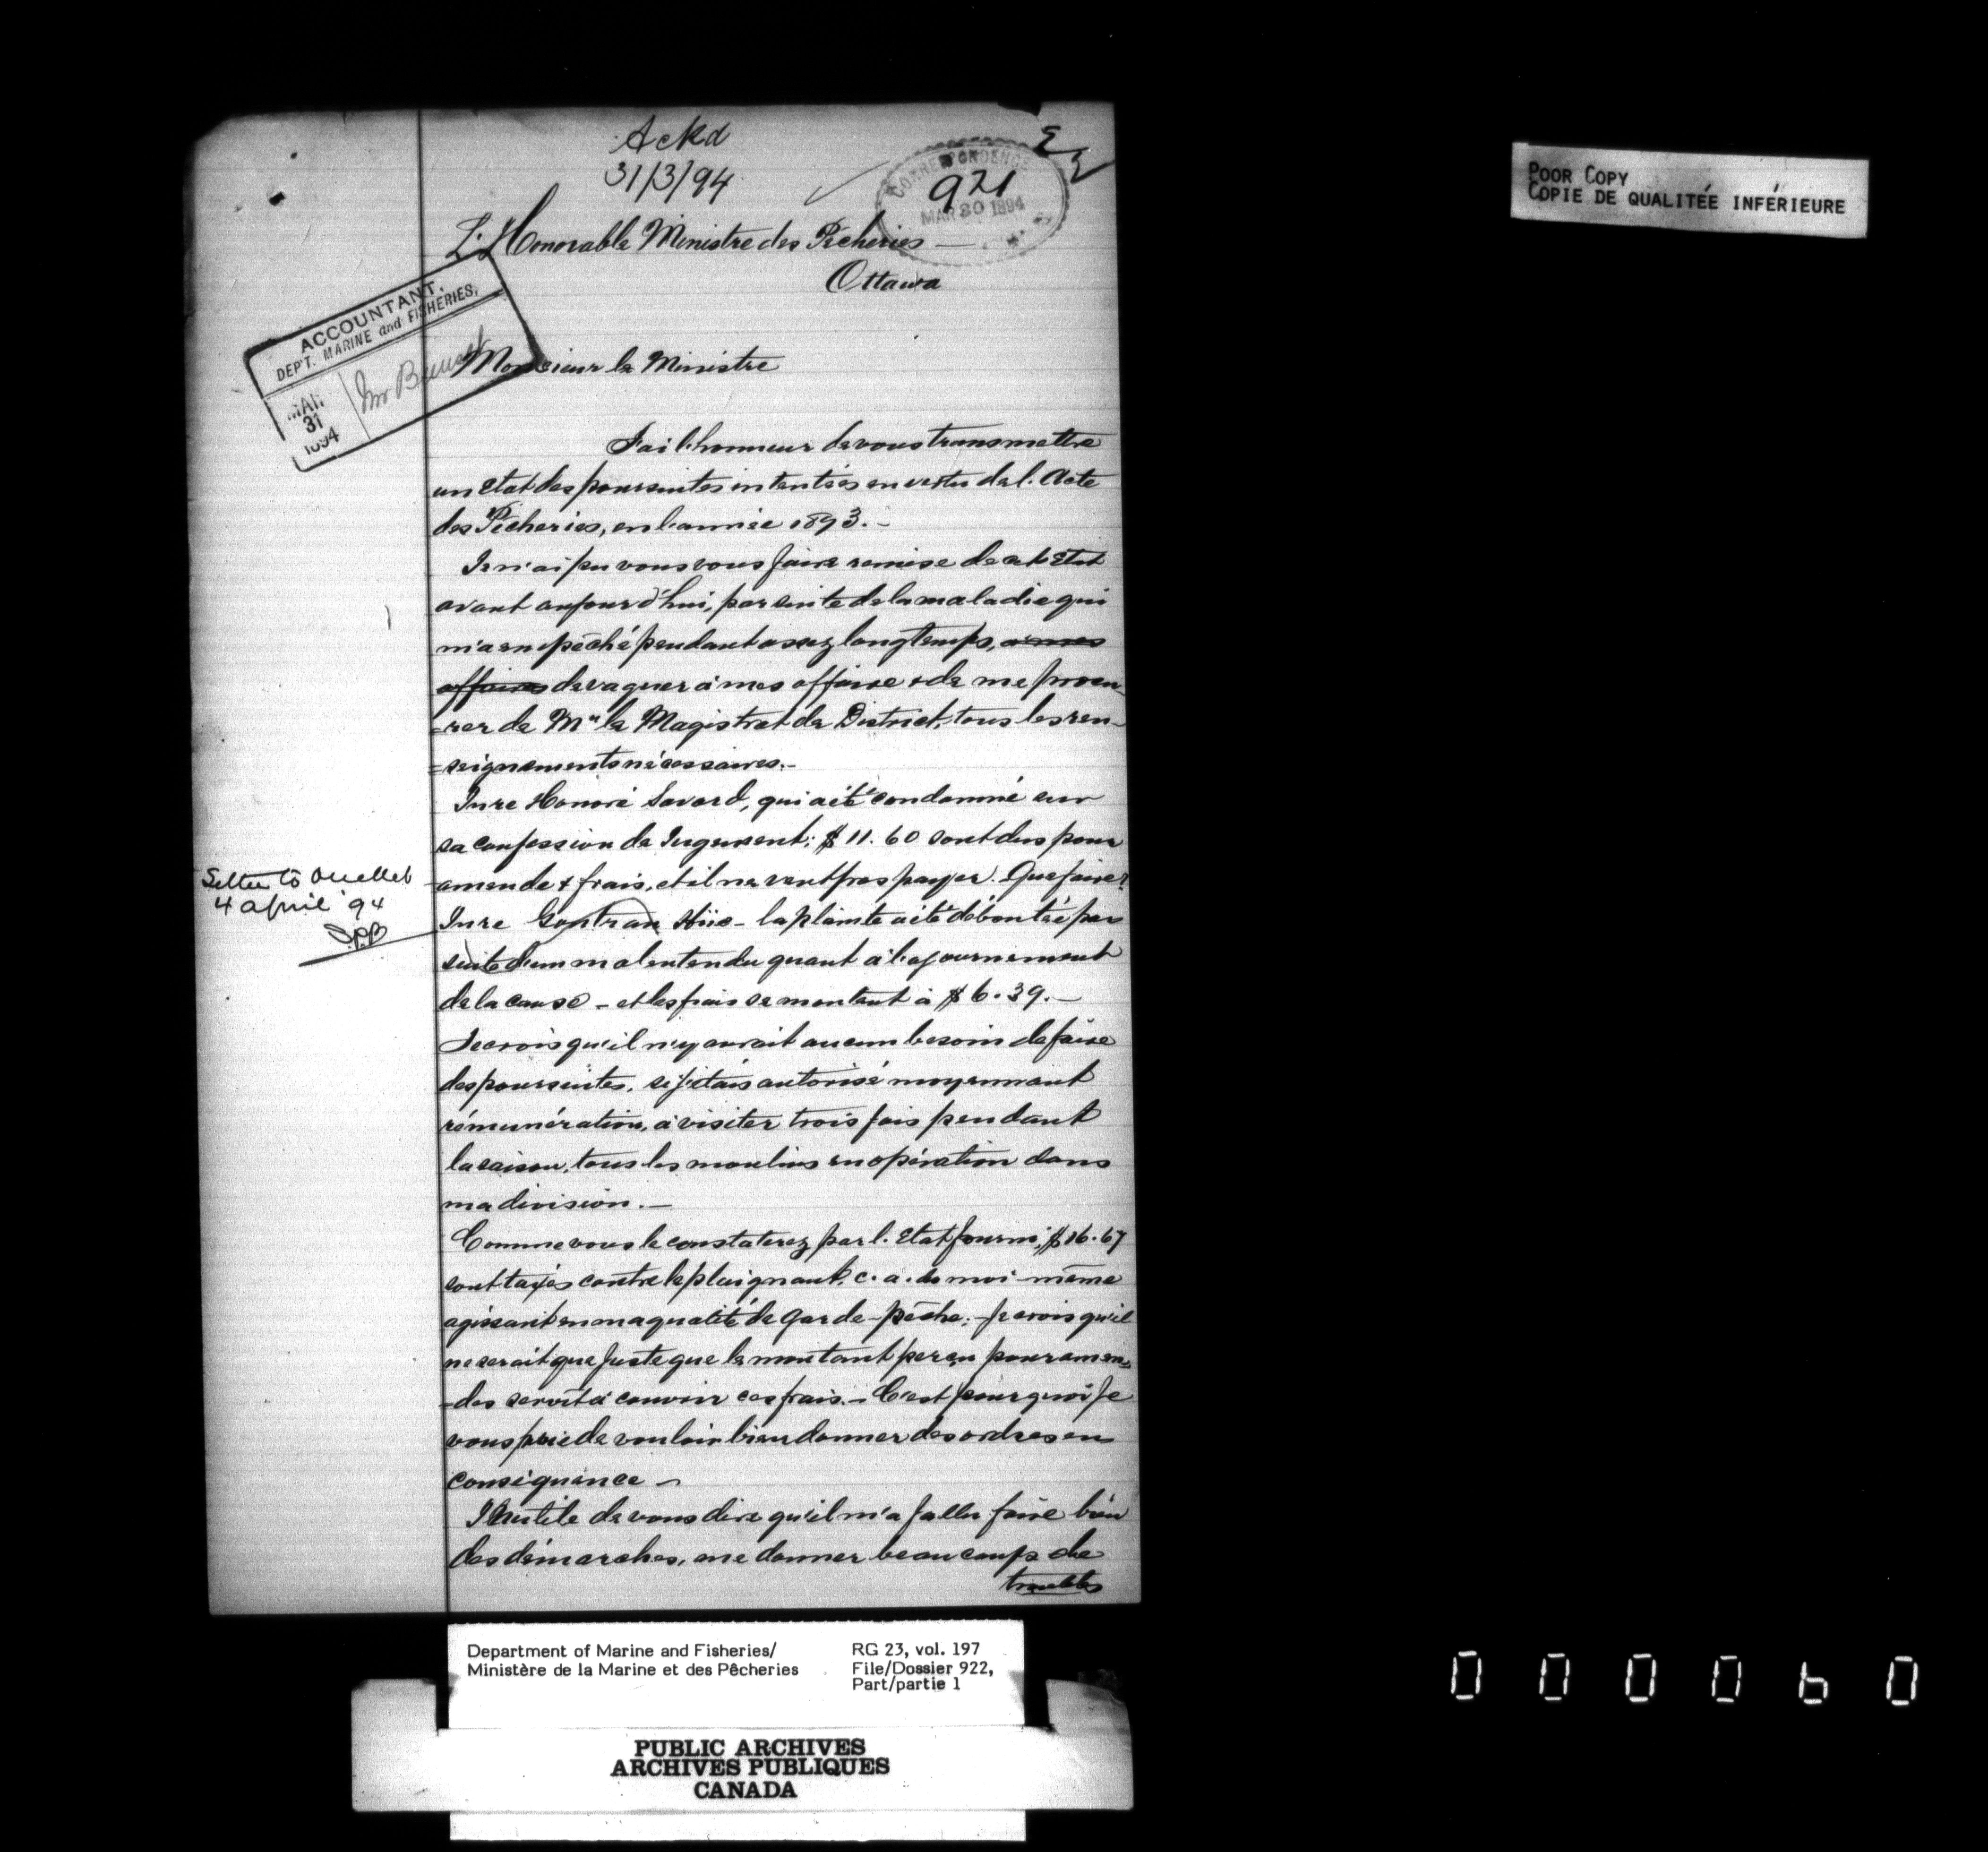 Ackd
31/3/94
CORRESPONDENCE
921
MAR 30 1894
L'Honorable Ministre des Pêcheries —
Ottawa
ACCOUNTANT.
DEP'T. MARINE and FISHERIES,
MAR
31
1894
Monsieur le Ministre
J'ai l'honneur de vous transmettre
un Etat des poursuites intentées en vertu de l'Acte
des Pêcheries, en l'année 1893.-
Je n'ai pu vous vous faire remise de cet Etat
avant aujourd'hui, par suite de la maladie qui
m'a empêché pendant assez longtemps, à mes
affaires de vaquer à mes affaire & de me procu-
-rer de Mr le Magistrat de District, tous les ren-
=seignements nécessaires.-
In re Honoré Savard, qui a été condamné sur
sa confession de Jugement: $11.60 sont dus pour
amende & frais, et il ne veut pas payer. Que faire?
In re Gontran Hüe - la plainte a été déboutée par
suite d'un malentendu quant à l'ajournement
de la cause - et les frais se montent à $6.39.-
Je crois qu'il n'y aurait aucun besoin de faire
des poursuites, si j'étais autorisé moyennant
rémunération, à visiter trois fois pendant
la saison, tous les moulins en opération dans
ma division.-
Comme vous le constaterez par l'Etat fourni, $16.67
sont taxés contre le plaignant, c. a. d. moi-même
agissant en ma qualité de Garde-pêche; - je crois qu'il
ne serait que juste que le montant perçu pour amen-
-des servît à couvrir ces frais.- C'est pourquoi je
vous prie de vouloir bien donner des ordres en
conséquence -
Inutile de vous dire qu'il m'a fallu faire bien
des démarches, me donner beaucoup de
troubles
Letter to Ouellet
4 April '94
POOR COPY
COPIE DE QUALITÉE INFÉRIEURE
Department of Marine and Fisheries/
Ministère de la Marine et des Pêcheries
RG 23, vol. 197
File/Dossier 922,
Part/partie 1
PUBLIC ARCHIVES
ARCHIVES PUBLIQUES
CANADA
000060